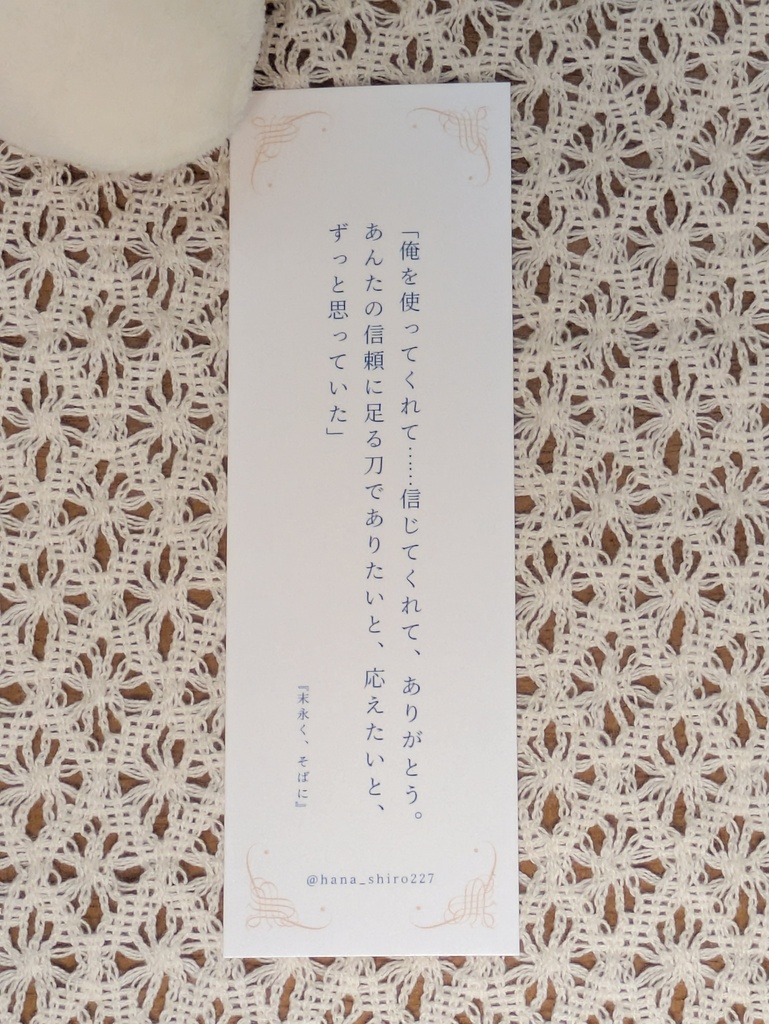 「俺を使ってくれて……信じてくれて、ありがとう。
あんたの信頼に足る刀でありたいと、応えたいと、
ずっと思っていた」
『末永く、そばに』
@hana_shiro227